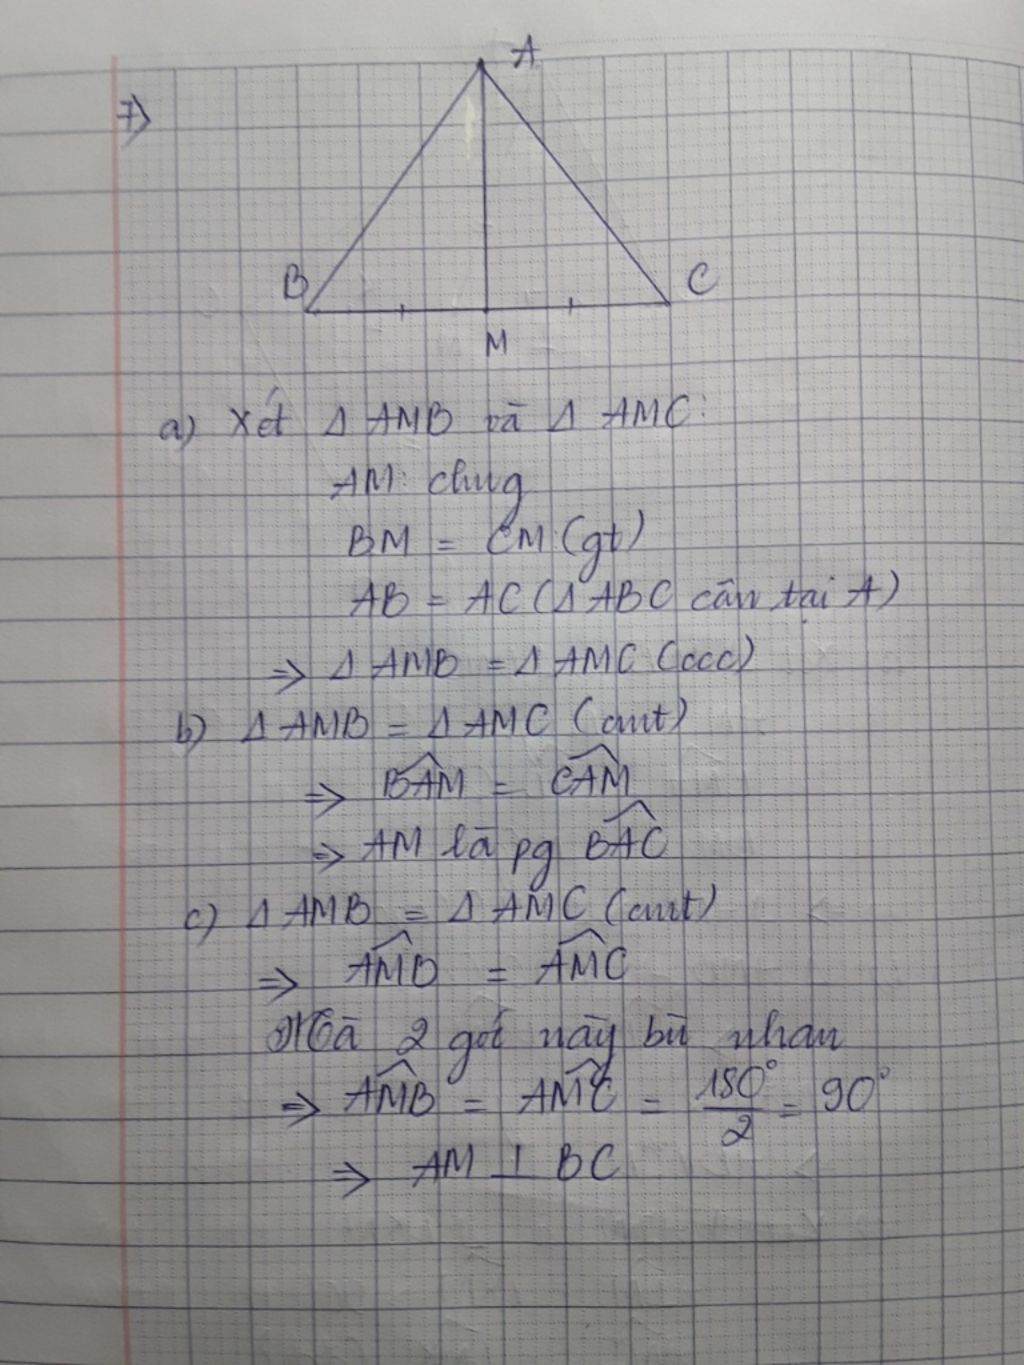 7)
A
B
C
M
a) Xét Δ AMB và Δ AMC:
AM: chug
BM = CM (gt)
AB = AC (Δ ABC cân tại A)
⇒ Δ AMB = Δ AMC (ccc)
b) Δ AMB = Δ AMC (cmt)
⇒ \widehat{BAM} = \widehat{CAM}
⇒ AM là pg \widehat{BAC}
c) Δ AMB = Δ AMC (cmt)
⇒ \widehat{AMB} = \widehat{AMC}
Mà 2 gói này bù nhau
⇒ \widehat{AMB} = \widehat{AMC} = \frac{180°}{2} = 90°
⇒ AM ⊥ BC